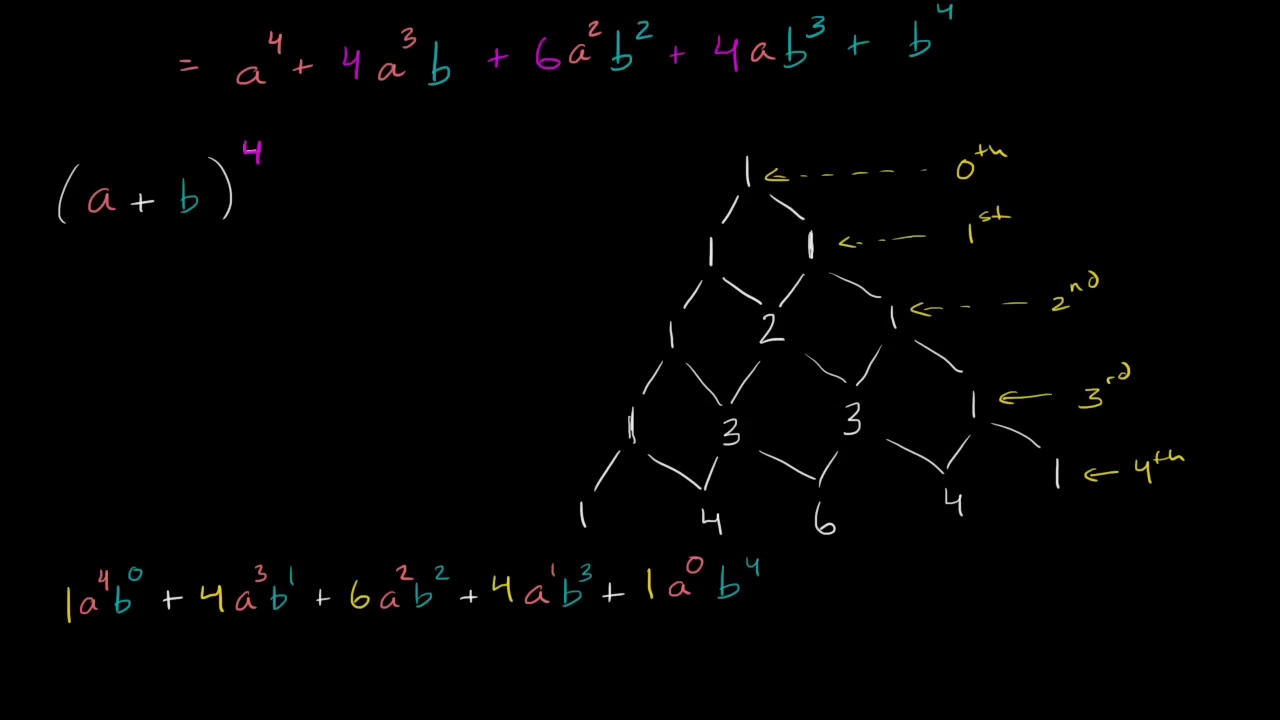 = a⁴ + 4a³b + 6a²b² + 4ab³ + b⁴
(a + b)⁴
1 ← 0th
1 1 ← 1st
1 2 1 ← 2nd
1 3 3 1 ← 3rd
1 4 6 4 1 ← 4th
1a⁴b⁰ + 4a³b¹ + 6a²b² + 4a¹b³ + 1a⁰b⁴